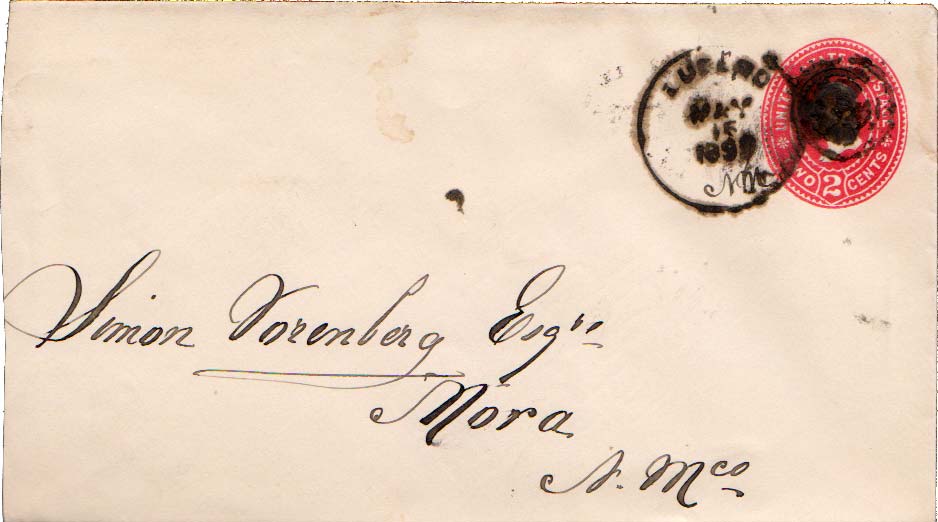 LUCERO
MAY
15
189
N M
UNITED STATES
TWO 2 CENTS
Simon Vorenberg Esqre
Mora
N. Mco